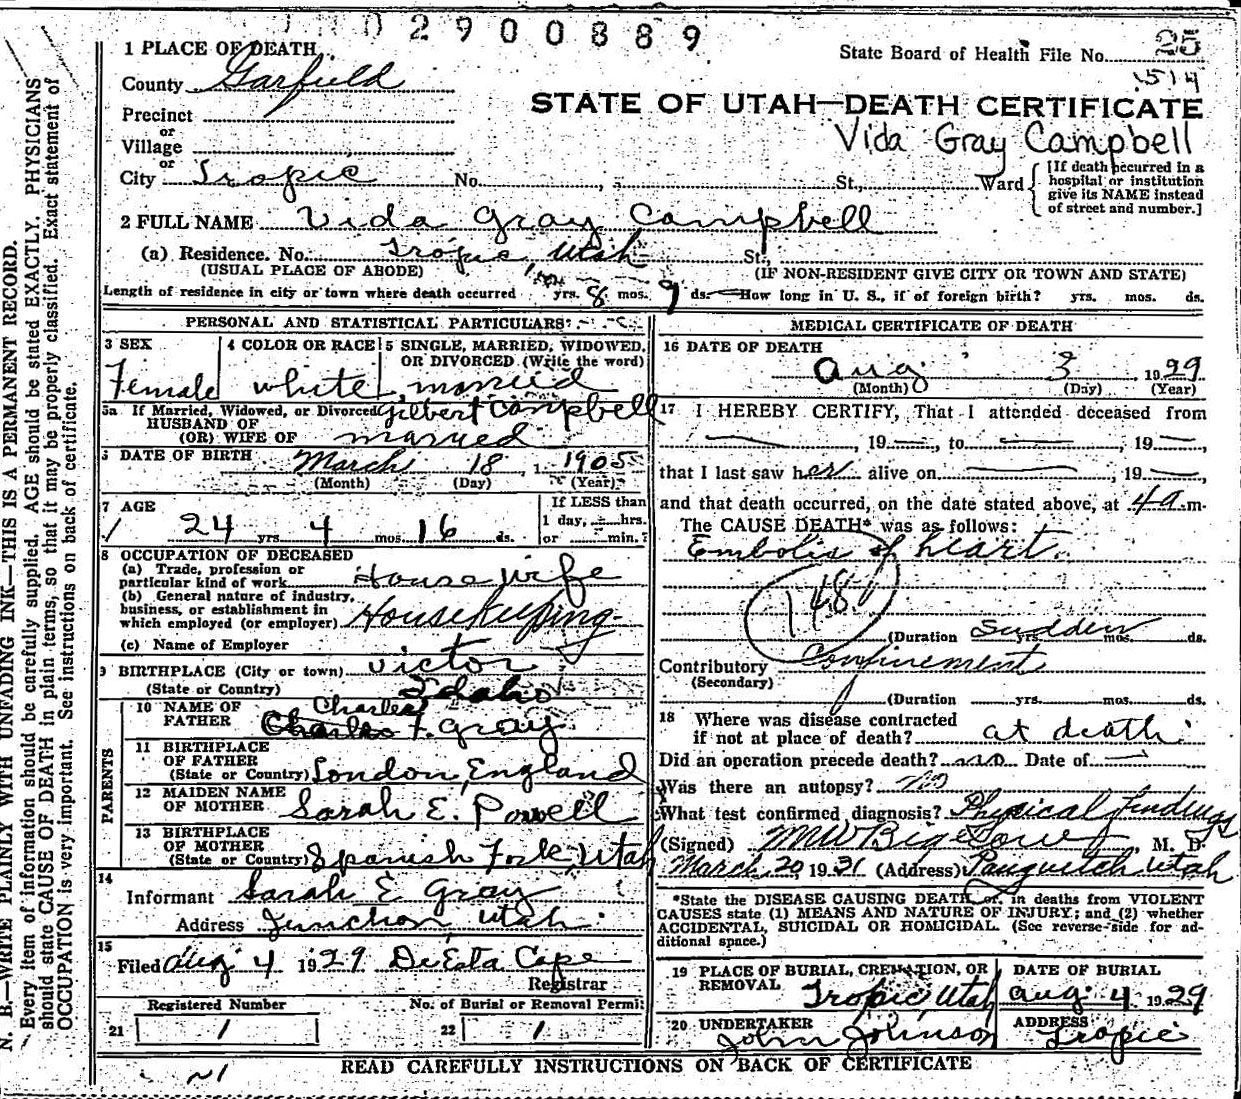 02900889
1 PLACE OF DEATH
State Board of Health File No. 25
County Garfield
514
STATE OF UTAH—DEATH CERTIFICATE
Precinct
Vida Gray Campbell
or
Village
or
City Tropic No. , St., Ward
[If death occurred in a
hospital or institution
give its NAME instead
of street and number.]
2 FULL NAME Vida Gray Campbell
(a) Residence. No. Tropic Utah St.,
(USUAL PLACE OF ABODE)
(IF NON-RESIDENT GIVE CITY OR TOWN AND STATE)
Length of residence in city or town where death occurred yrs. 8 mos. 9 ds. How long in U. S., if of foreign birth? yrs. mos. ds.
PERSONAL AND STATISTICAL PARTICULARS
3 SEX
Female
4 COLOR OR RACE
white
5 SINGLE, MARRIED, WIDOWED,
OR DIVORCED (Write the word)
married
5a If Married, Widowed, or Divorced Gilbert Campbell
HUSBAND OF
(OR) WIFE OF married
6 DATE OF BIRTH
March 18, 1905
(Month) (Day) (Year)
7 AGE
24 yrs. 4 mos. 16 ds.
If LESS than
1 day, hrs.
or min.?
8 OCCUPATION OF DECEASED
(a) Trade, profession or
particular kind of work House wife
(b) General nature of industry,
business, or establishment in
which employed (or employer) Housekeeping
(c) Name of Employer
9 BIRTHPLACE (City or town) Victor
(State or Country) Idaho
PARENTS
10 NAME OF
FATHER Charles
Charles F. Gray
11 BIRTHPLACE
OF FATHER
(State or Country) London, England
12 MAIDEN NAME
OF MOTHER Sarah E. Powell
13 BIRTHPLACE
OF MOTHER
(State or Country) Spanish Fork, Utah
14
Informant Sarah E Gray
Address Junction, Utah
15
Filed Aug 4 1929 DeEsta Cope
Registrar
Registered Number
21 1
No. of Burial or Removal Permit
22 1
MEDICAL CERTIFICATE OF DEATH
16 DATE OF DEATH
Aug 3 1929
(Month) (Day) (Year)
17 I HEREBY CERTIFY, That I attended deceased from
— , 19 —, to — , 19 —
that I last saw her alive on — , 19 —,
and that death occurred, on the date stated above, at 4 a.m.
The CAUSE DEATH* was as follows:
Embolis of heart.
148
(Duration Sudden yrs. mos. ds.
Contributory Confinement
(Secondary)
(Duration yrs. mos. ds.
18 Where was disease contracted
if not at place of death? at death
Did an operation precede death? no Date of —
Was there an autopsy? no
What test confirmed diagnosis? Physical findings
(Signed) M W Bigelow, M. D.
March 20 1931 (Address) Panguitch Utah
*State the DISEASE CAUSING DEATH, or, in deaths from VIOLENT
CAUSES state (1) MEANS AND NATURE OF INJURY; and (2) whether
ACCIDENTAL, SUICIDAL OR HOMICIDAL. (See reverse side for ad-
ditional space.)
19 PLACE OF BURIAL, CREMATION, OR
REMOVAL Tropic, Utah
DATE OF BURIAL
Aug. 4 1929
20 UNDERTAKER
John Johnson
ADDRESS
Tropic
READ CAREFULLY INSTRUCTIONS ON BACK OF CERTIFICATE
N. B.—WRITE PLAINLY WITH UNFADING INK—THIS IS A PERMANENT RECORD.
Every item of information should be carefully supplied. AGE should be stated EXACTLY. PHYSICIANS
should state CAUSE OF DEATH in plain terms, so that it may be properly classified. Exact statement of
OCCUPATION is very important. See instructions on back of certificate.